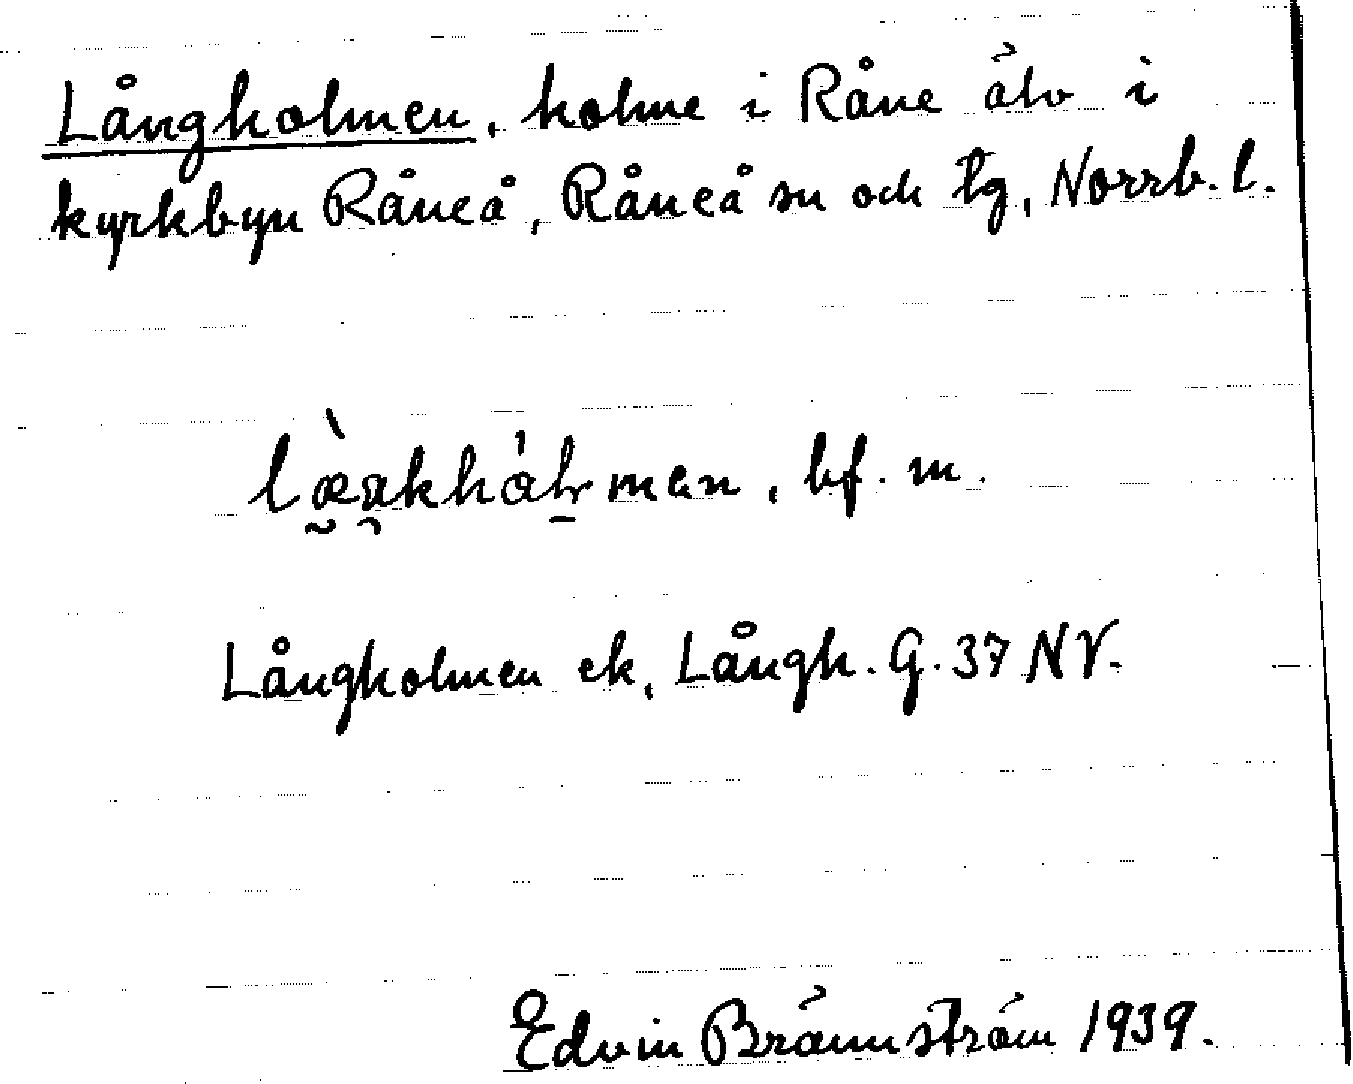 Långholmen, holme i Råne älv i
kyrkbyn Råneå, Råneå sn och tg, Norrb. l.
bf. m.
Långholmen ek, Långh. G. 37 NV.
Edvin Brännström 1939.